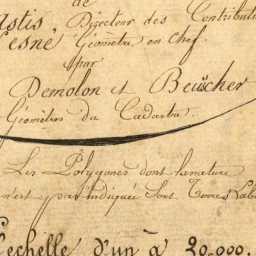 de
astis, Directeur des Contributi
Lesne Géometre en chef.
par
Demolon et Beuscher
Géomètres du Cadastre.
Les Polygones dont la nature
n'est pas indiquée sont Terres Lab
echelle d'un à 20,000.